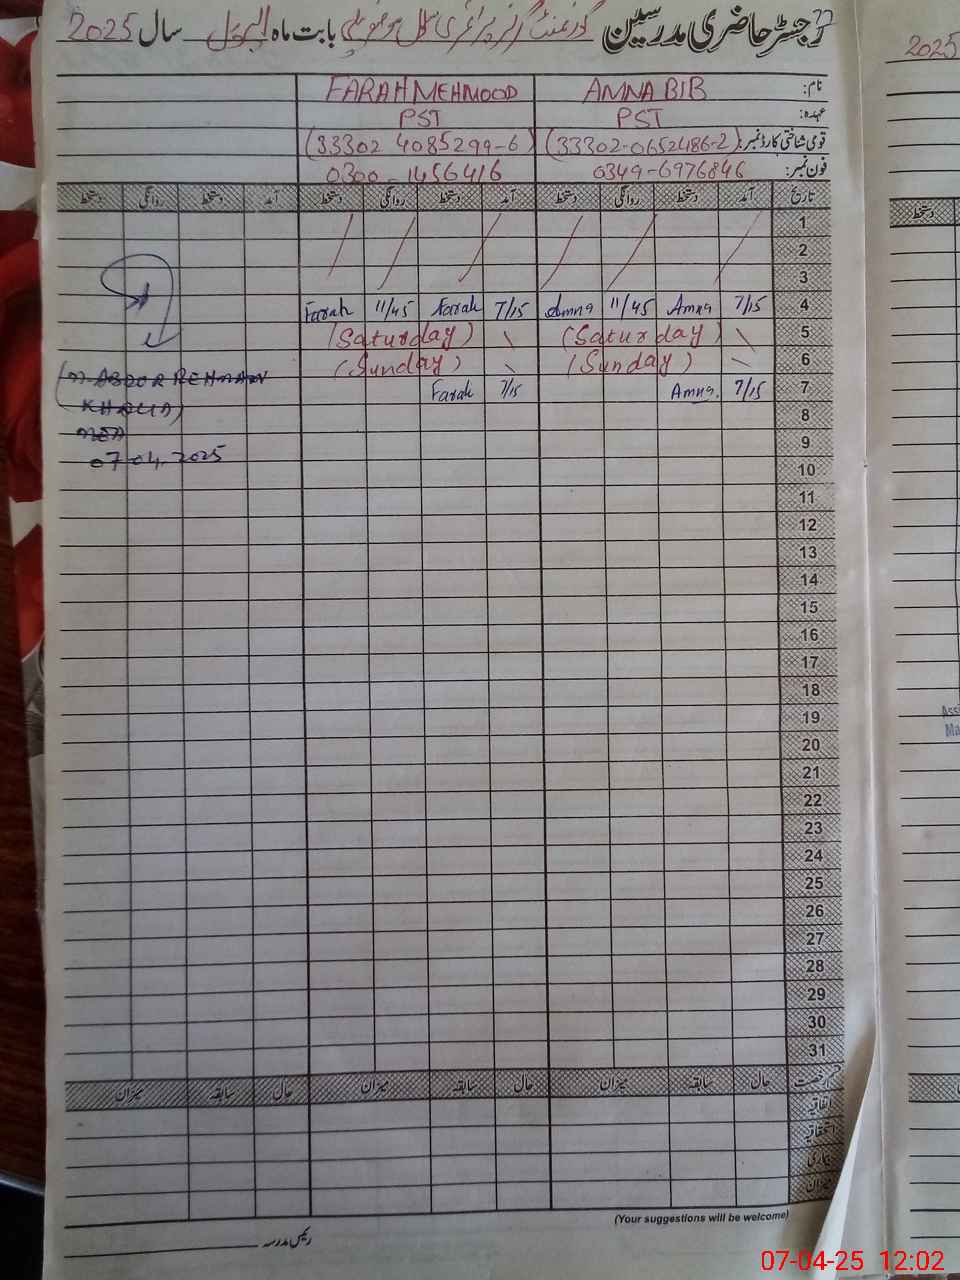 رجسٹر حاضری مدرسین گورنمنٹ گرلز پرائمری سکول بابت ماہ اپریل سال 2025
نام: AMNA BIB FARAH MEHMOOD
عہدہ: PST PST
قومی شناختی کارڈ نمبر: (33302-0652486-2) (33302 4085299-6)
فون نمبر: 0349-6976846 0300-1456416
تاریخ آمد دستخط روانگی دستخط آمد دستخط روانگی دستخط آمد دستخط روانگی دستخط
1
2
3
4 7/15 Amna 11/45 Amna 7/15 Farah 11/45 Farah
5 (Saturday) (Saturday)
6 (Sunday) (Sunday)
7 7/15 Amna. 7/15 Farah
(M. ABDUR REHMAN
8
KHALID)
9
07.04.2025
10
11
12
13
14
15
16
17
18
19
20
21
22
23
24
25
26
27
28
29
30
31
قسم رخصت حال سابقہ میزان حال سابقہ میزان حال سابقہ میزان
اتفاقیہ
استحقاقیہ
بیماری
میزان
(Your suggestions will be welcome)
رئیس مدرسہ
2025
دستخط
07-04-25 12:02